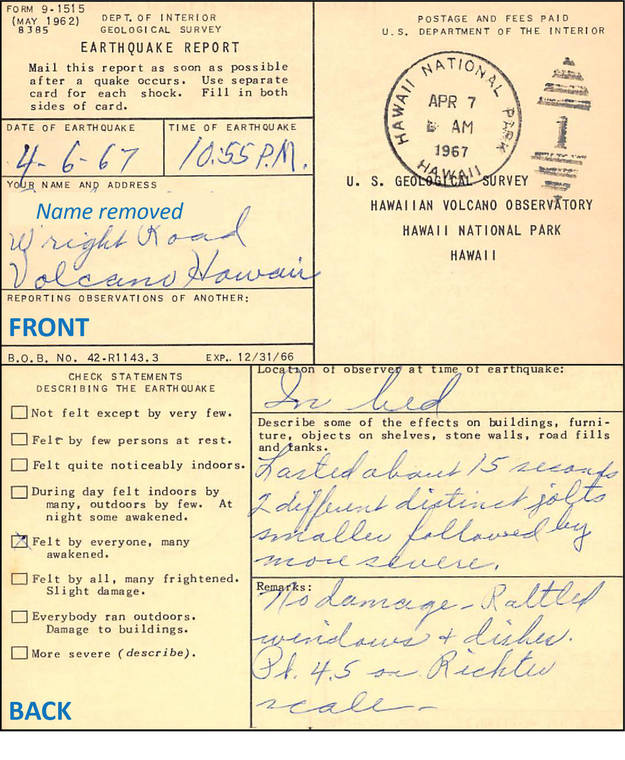 FORM 9-1515
(MAY 1962)
8385
DEPT. OF INTERIOR
GEOLOGICAL SURVEY
EARTHQUAKE REPORT
Mail this report as soon as possible
after a quake occurs. Use separate
card for each shock. Fill in both
sides of card.
DATE OF EARTHQUAKE
4-6-67
TIME OF EARTHQUAKE
10:55 P.M.
YOUR NAME AND ADDRESS
Name removed
Wright Road
Volcano Hawaii
REPORTING OBSERVATIONS OF ANOTHER:
FRONT
B.O.B. No. 42-R1143.3 EXP. 12/31/66
POSTAGE AND FEES PAID
U.S. DEPARTMENT OF THE INTERIOR
HAWAII NATIONAL PARK
APR 7
AM
1967
HAWAII
1
U. S. GEOLOGICAL SURVEY
HAWAIIAN VOLCANO OBSERVATORY
HAWAII NATIONAL PARK
HAWAII
CHECK STATEMENTS
DESCRIBING THE EARTHQUAKE
Not felt except by very few.
Felt by few persons at rest.
Felt quite noticeably indoors.
During day felt indoors by
many, outdoors by few. At
night some awakened.
Felt by everyone, many
awakened.
Felt by all, many frightened.
Slight damage.
Everybody ran outdoors.
Damage to buildings.
More severe (describe).
BACK
Location of observer at time of earthquake:
In bed
Describe some of the effects on buildings, furni-
ture, objects on shelves, stone walls, road fills
and tanks.
Lasted about 15 seconds
2 different distinct jolts
smaller followed by
more severe.
Remarks:
No damage - Rattled
windows + dishes.
4.5 on Richter
scale -